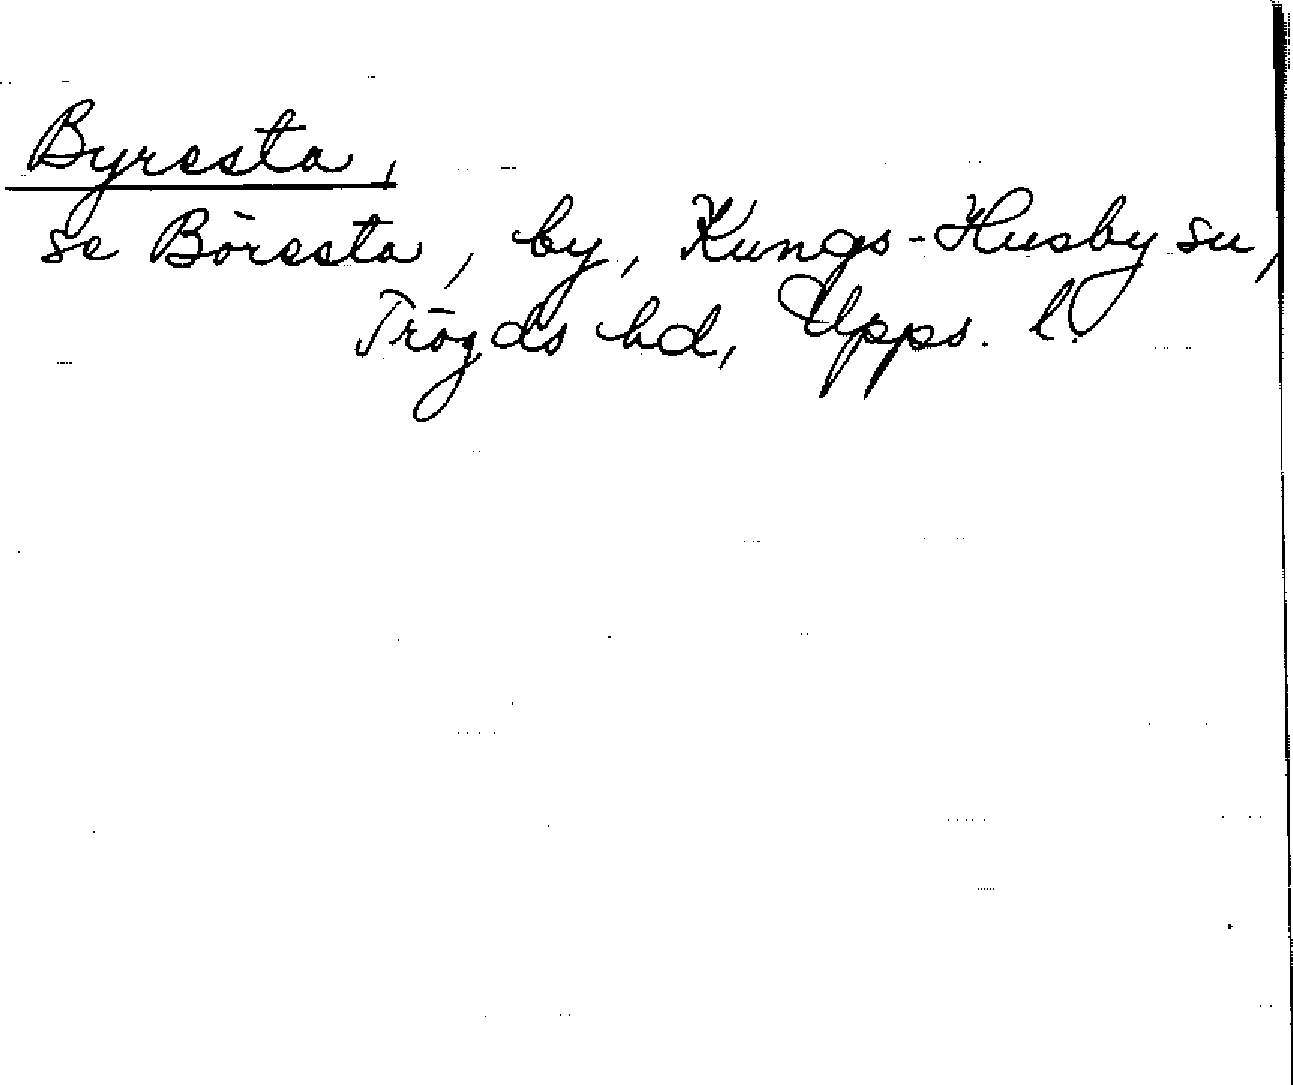 Byresta,
se Böresta, by, Kungs-Husby sn,
Trögds hd, Upps. l.